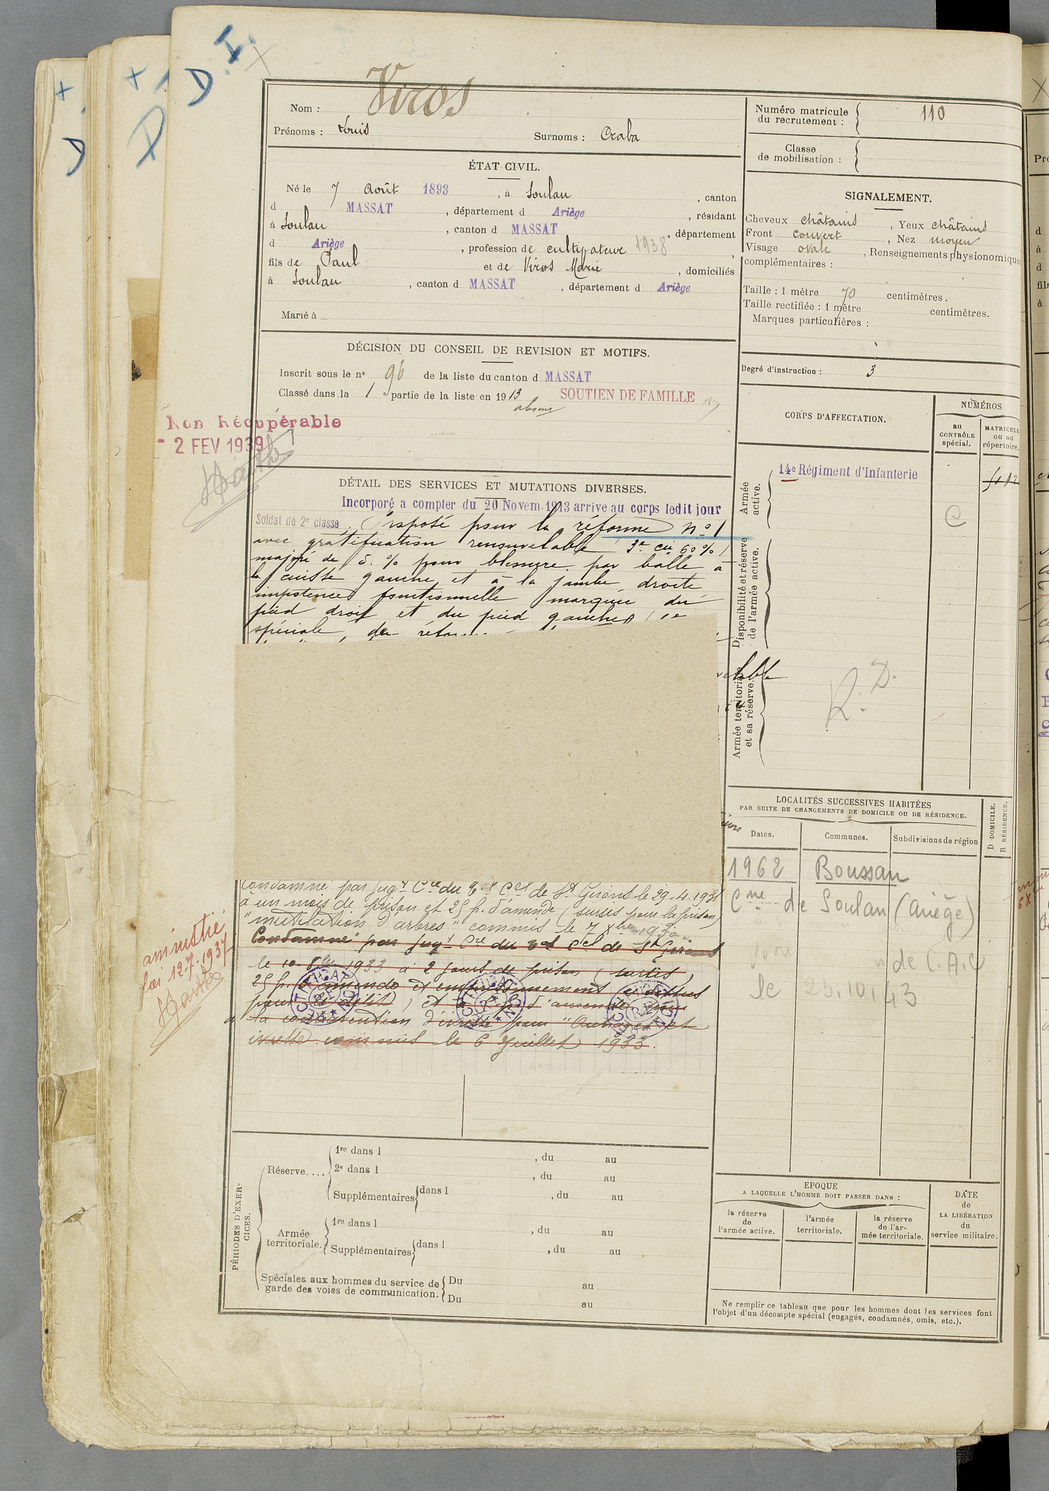 D. I.
D
D
Nom : Viros
Prénoms : Louis Surnoms : Craba
Numéro matricule du recrutement : 110
Classe de mobilisation :
ÉTAT CIVIL.
Né le 7 Août 1893, à Soulan, canton
d MASSAT, département d Ariège, résidant
à Soulan, canton d MASSAT, département
d Ariège, profession de cultivateur 1938,
fils de Paul et de Viros Marie, domiciliés
à Soulan, canton d MASSAT, département d Ariège
Marié à
SIGNALEMENT.
Cheveux châtains, Yeux châtains
Front couvert, Nez moyen
Visage ovale, Renseignements physionomiques
complémentaires :
Taille : 1 mètre 70 centimètres.
Taille rectifiée : 1 mètre centimètres.
Marques particulières :
Degré d'instruction : 3
DÉCISION DU CONSEIL DE REVISION ET MOTIFS.
Inscrit sous le n° 96 de la liste du canton d MASSAT
Classé dans la 1 partie de la liste en 1913 SOUTIEN DE FAMILLE
absent
Non Récupérable
- 2 FEV 1939
CORPS D'AFFECTATION.
NUMÉROS
au CONTRÔLE spécial.
MATRICULE ou au répertoire.
Armée active.
14e Régiment d'Infanterie
C
Disponibilité et réserve de l'armée active.
Armée territoriale et sa réserve.
R. D.
DÉTAIL DES SERVICES ET MUTATIONS DIVERSES.
Incorporé a compter du 26 Novem. 1913 arrive au corps ledit jour
Soldat de 2e classe. Proposé pour la réforme N° 1
avec gratification renouvelable 3e cie 60 %
majoré de 5 % pour blessure par balle à
la cuisse gauche et à la jambe droite
impotence fonctionnelle marquée du
pied droit et du pied gauche
spéciale, de
Condamné par jugt Cre du Bal Cel de St Girons le 29-4-1931
à un mois de prison et 25 f. d'amende (sursis pour la prison)
"mutilation d'arbres" commis le 7 Xbre 1930
Condamné par jugt Cre du Bal Cel de St Girons
le 10 1933 à 2 jours de prison (sursis)
25 f. d'amende
d'amende
la contravention d'ivresse pour "Outrages et
ivresse commis le 6 Juillet 1933.
amnistié
loi 12-7-1937
LOCALITÉS SUCCESSIVES HABITÉES
PAR SUITE DE CHANGEMENTS DE DOMICILE OU DE RÉSIDENCE.
Dates. Communes. Subdivisions de région
D DOMICILE. R RÉSIDENCE.
1962 Boussan
Cne de Soulan (Ariège)
de C.A.
le 25.10.43
PÉRIODES D'EXERCICES.
Réserve....
1re dans l , du au
2e dans l , du au
Supplémentaires dans l , du au
Armée territoriale.
1re dans l , du au
Supplémentaires dans l , du au
Spéciales aux hommes du service de garde des voies de communication.
Du au
Du au
EPOQUE
A LAQUELLE L'HOMME DOIT PASSER DANS :
la réserve de l'armée active.
l'armée territoriale.
la réserve de l'armée territoriale.
DATE de LA LIBÉRATION du service militaire.
Ne remplir ce tableau que pour les hommes dont les services font
l'objet d'un décompte spécial (engagés, condamnés, omis, etc.).